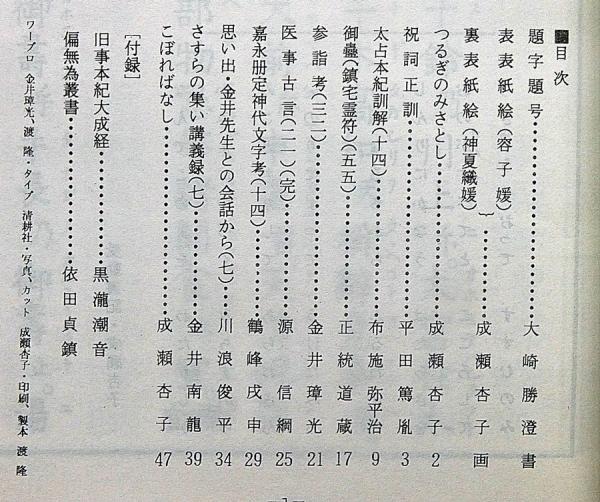 ■目次
題字題号…………………大崎勝澄書
表表紙絵(容子媛)
裏表紙絵(神夏織媛)}……成瀬杏子画
つるぎのみさとし…………成瀬杏子 2
祝詞正訓……………………平田篤胤 3
太占本紀訓解(十四)………布施弥平治 9
御蠱(鎮宅霊符)(五五)……正統道蔵 17
参詣考(三二)………………金井璋光 21
医事古言(二一)(完)………源信綱 25
嘉永册定神代文字考(十四)…鶴峰戌申 29
思い出・金井先生との会話から(七)…川浪俊平 34
さすらの集い講義録(七)……金井南龍 39
こぼればなし………………成瀬杏子 47
[付録]
旧事本紀大成経……………黒瀧潮音
偏無為叢書…………………依田貞鎮
ワープロ 金井璋光、渡隆・タイプ 清耕社・写真、カット 成瀬杏子・印刷、製本 渡隆
—1—